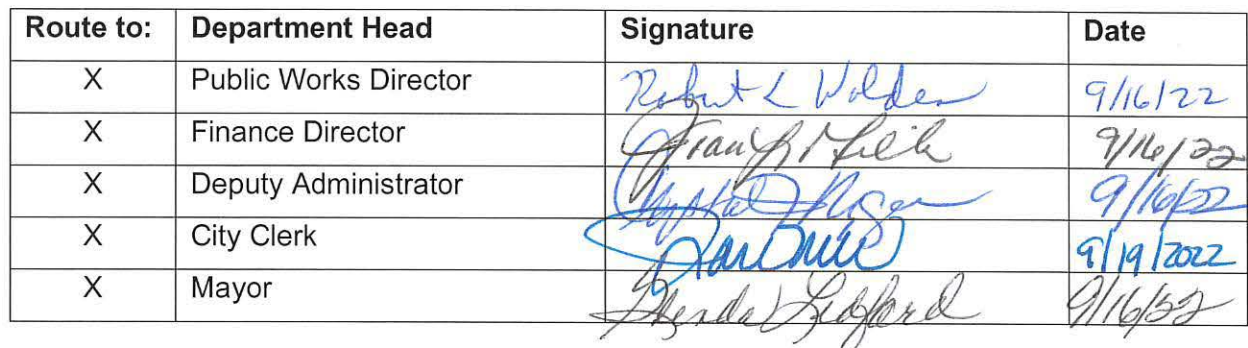 Route to: Department Head Signature Date
X Public Works Director Robert L Wolden 9/16/22
X Finance Director 9/16/22
X Deputy Administrator 9/16/22
X City Clerk 9/19/2022
X Mayor Ledford 9/16/22